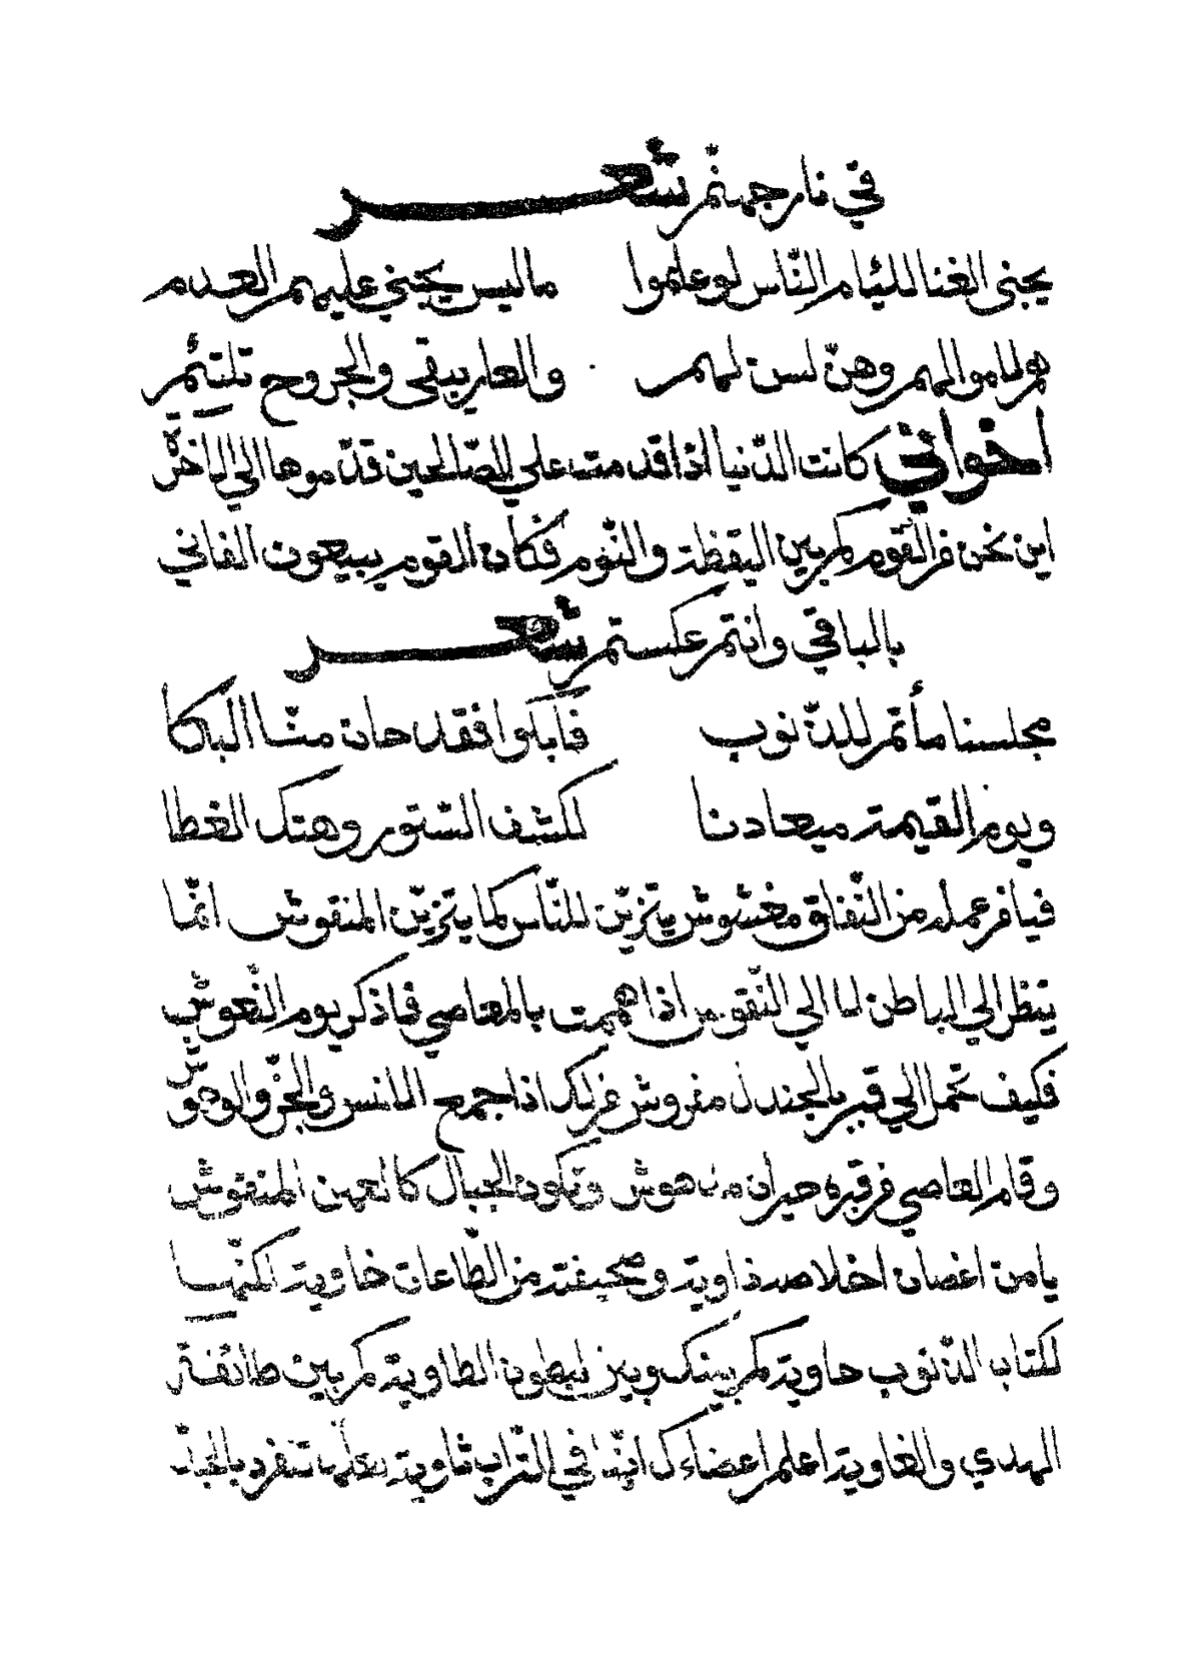 في نار جهنّم شعر
يجنى الغنا للئام النّاس لو علموا ما ليس يجني عليهم العدم
هم لاموالهم وهنّ لسن لهم والعار يبقى والجروح تلتئم
اخواني كانت الدّنيا اذا قدمت علي الصّالحين قدّموها الي الاخرة
اين نحن من القوم كم بين اليقظة والنّوم فكان القوم يبيعون الفاني
بالباقي وانتم عكستم شعر
مجلسنا مأتم للذّنوب فابكوا فقد حان منّا البكا
ويوم القيمة ميعادنا لكشف السّتور وهتك الغطا
فيا من عمله من النّفاق مغشوش يتزيّن للنّاس كما يتزيّن المنقوش انّما
ينظر الي الباطن لا الي النّقوش اذا هممت بالمعاصي فاذكر يوم النّعوش
فكيف تحمل الي قبر بالجندل مفروش من لك اذا جمع الانس والجنّ والوحوش
وقام العاصي من قبره حيران مدهوش وتكون الجبال كالعهن المنفوش
يا من اغصان اخلاصه ذاوية وصحيفته من الطّاعات خاوية لكنّها
لكتاب الذّنوب حاوية كم بينك وبين البطون الطاوية كم بين طائفة
الهدي والغاوية اعلم اعضاءك انّها في التّراب ثاوية لعلّها تنفرد بالجدّ